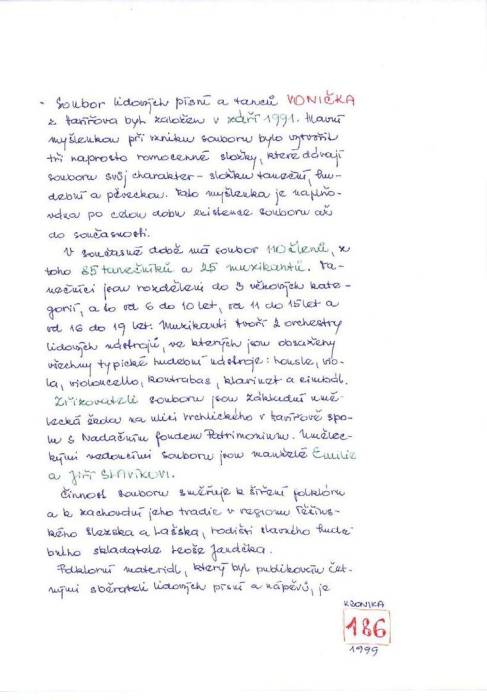 - Soubor lidových písní a tanců VONIČKA
z Havířova byl založen v září 1991. Hlavní
myšlenkou při vzniku souboru bylo vytvořit
tři naprosto rovnocenné složky, které dávají
souboru svůj charakter - složku taneční, hu-
dební a pěveckou. Tato myšlenka je naplňo-
vána po celou dobu existence souboru až
do současnosti.
V současné době má soubor 110 členů, z
toho 85 tanečníků a 25 muzikantů. Ta-
nečníci jsou rozděleni do 3 věkových kate-
gorií, a to od 6 do 10 let, od 11 do 15 let a
od 16 do 19 let. Muzikanti tvoří 2 orchestry
lidových nástrojů, ve kterých jsou obsaženy
všechny typické hudební nástroje: housle, vio-
la, violoncello, kontrabas, klarinet a cimbál.
Zřizovateli souboru jsou Základní umě-
lecká škola na ulici Vrchlického v Havířově spo-
lu s Nadačním fondem Patrimonium. Umělec-
kými vedoucími souboru jsou manželé Emilie
a Jiří Slovíkovi.
Činnost souboru směřuje k šíření folklóru
a k zachování jeho tradic v regionu Těšíns-
kého Slezska a Lašska, rodišti slavného hude
bního skladatele Leoše Janáčka.
Folklorní materiál, který byl publikován čet-
nými sběrateli lidových písní a nápěvů, je
KRONIKA
186
1999